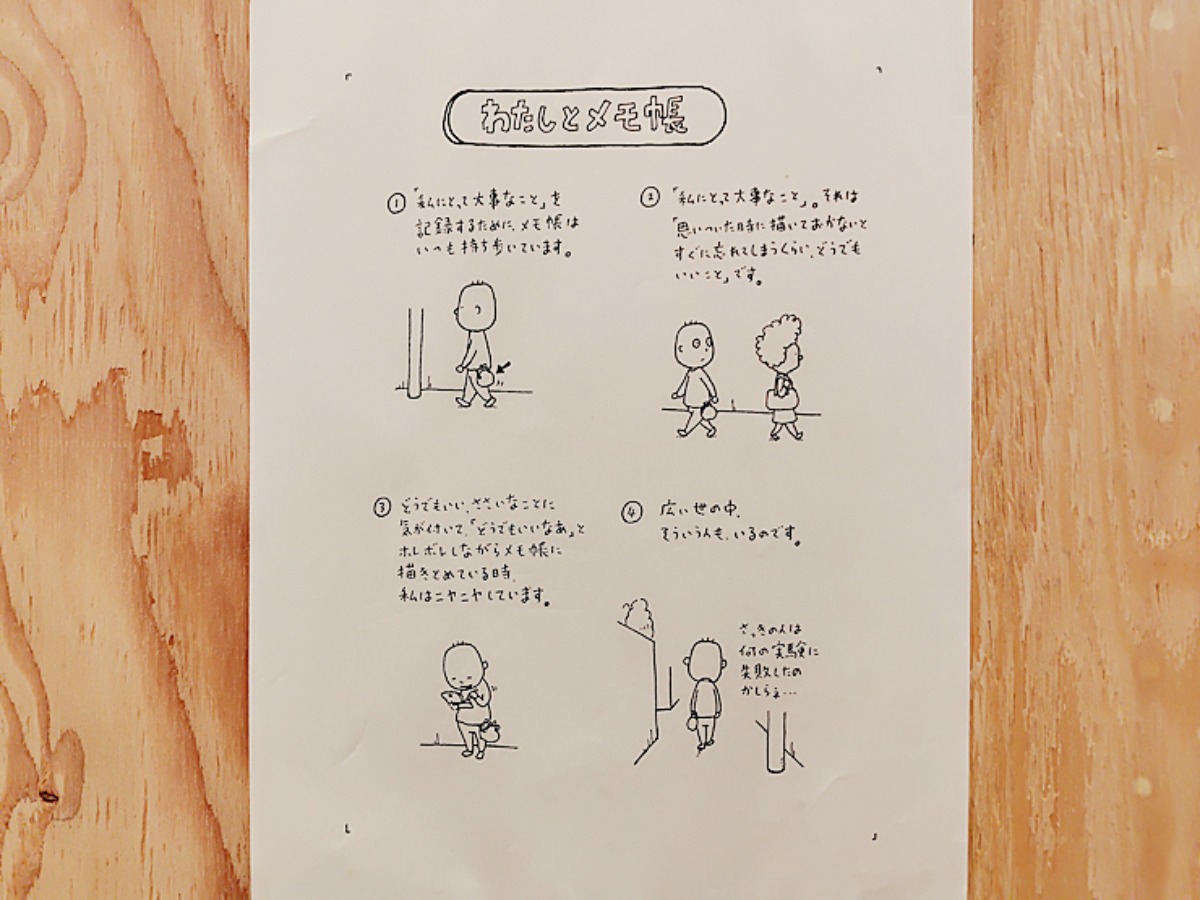 わたしとメモ帳
① 「私にとって大事なこと」を
記録するために、メモ帳は
いつも持ち歩いています。
② 「私にとって大事なこと」。それは
「思いついた時に描いておかないと
すぐに忘れてしまうくらい、どうでも
いいこと」です。
③ どうでもいい、ささいなことに
気が付いて、「どうでもいいなあ」と
ホレボレしながらメモ帳に
描きとめている時、
私はニヤニヤしています。
④ 広い世の中、
そういう人も、いるのです。
さっきの人は
何の実験に
失敗したの
かしらぇ…